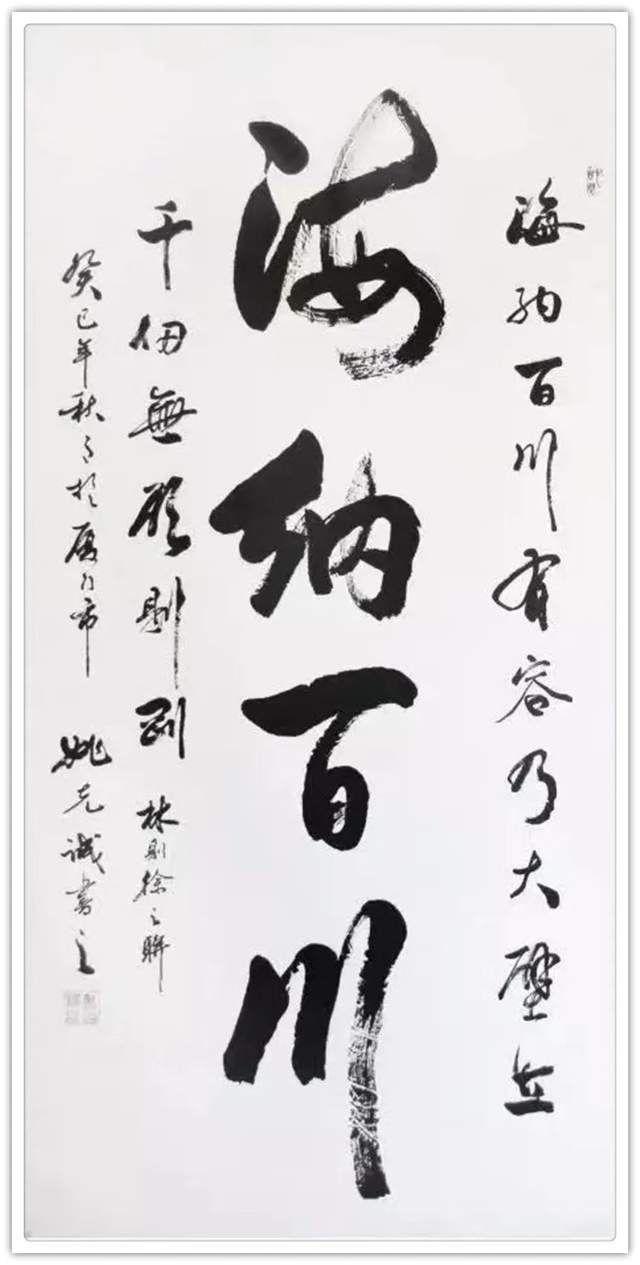 海纳百川有容乃大壁立
海纳百川
千仞無欲則剛 林則徐之聯
癸巳年秋月於厦门市 姚克诚書之